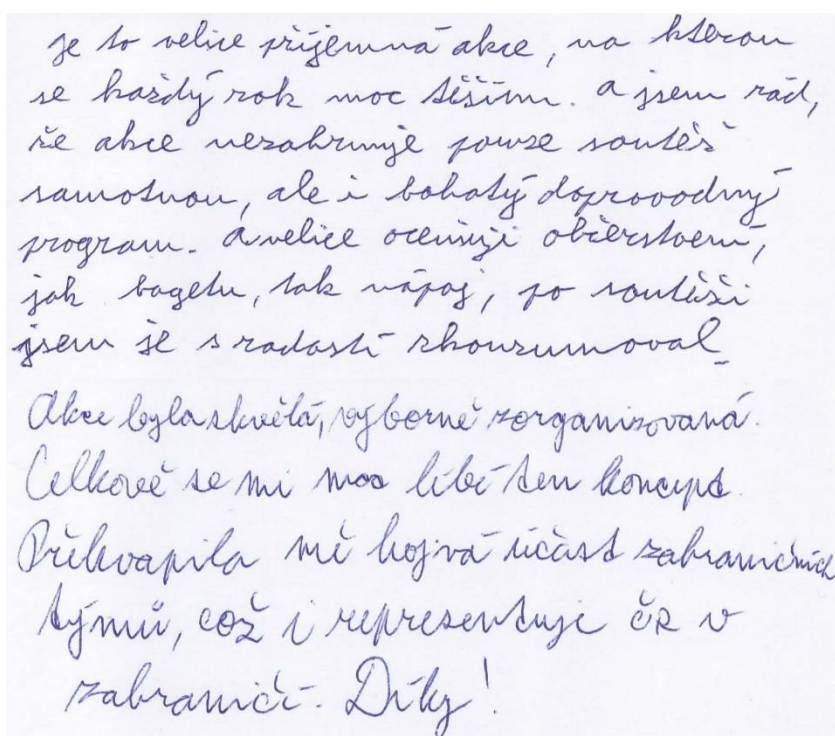 je to velice příjemná akce, na kterou
se každý rok moc těším. a jsem rád,
že akce nezahrnuje pouze soutěž
samotnou, ale i bohatý doprovodný
program. a velice oceňuji občerstvení,
jak bagetu, tak nápoj, po soutěži
jsem je s radostí zkonzumoval
Akce byla skvělá, výborně zorganizovaná.
Celkově se mi moc líbí ten koncept.
Překvapila mě hojná účast zahraničních
týmů, což i reprezentuje ČR v
zahraničí. Díky!